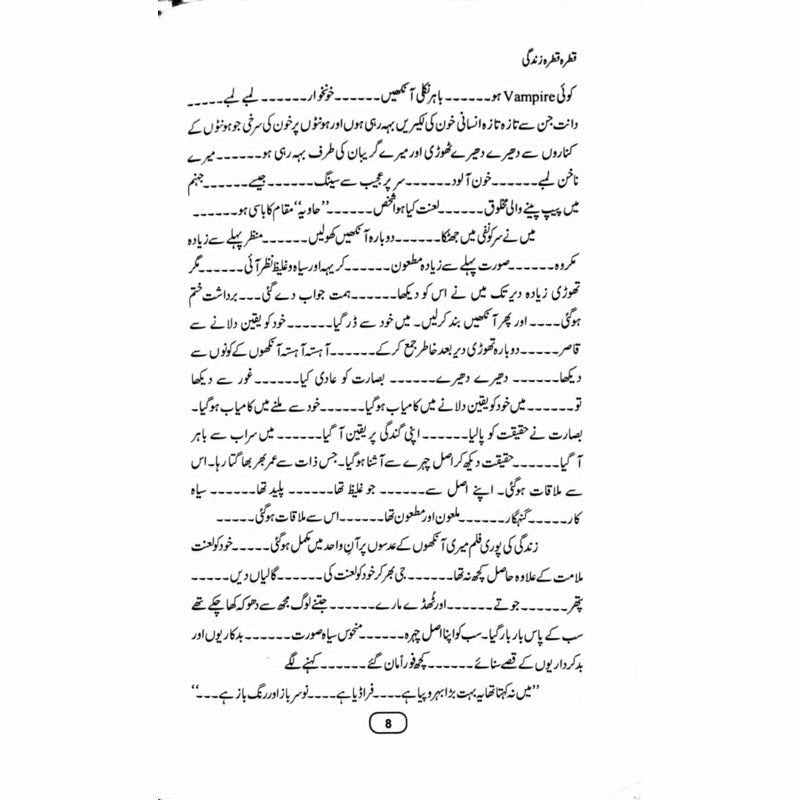 قطرہ قطرہ زندگی
کوئی Vampire ہو۔۔۔۔۔۔ باہر نکلی آنکھیں۔۔۔۔۔۔خونخوار۔۔۔۔۔۔ لمبے لمبے۔۔۔۔۔
دانت جن سے تازہ تازہ انسانی خون کی لکیریں بہہ رہی ہوں اور ہونٹوں پر خون کی سرخی جو ہونٹوں کے
کناروں سے دھیرے دھیرے ٹھوڑی اور میرے گریبان کی طرف بہہ رہی ہو۔۔۔۔۔۔میرے
ناخن لمبے۔۔۔۔۔۔خون آلود۔۔۔۔۔۔سر پر عجیب سے سینگ۔۔۔۔۔۔جیسے۔۔۔۔۔۔جہنم
میں پیپ پینے والی مخلوق۔۔۔۔۔۔لعنت کیا ہوا شخص۔۔۔۔۔۔’’حاویہ‘‘ مقام کا باسی ہو۔۔۔۔۔۔
میں نے سر کو نفی میں جھٹکا۔۔۔۔۔۔دوبارہ آنکھیں کھولیں۔۔۔۔۔۔منظر پہلے سے زیادہ
مکروہ۔۔۔۔۔۔صورت پہلے سے زیادہ مطعون۔۔۔۔۔۔کریہہ اور سیاہ و غلیظ نظر آئی۔۔۔۔۔۔مگر
تھوڑی زیادہ دیر تک میں نے اس کو دیکھا۔۔۔۔۔۔ہمت جواب دے گئی۔۔۔برداشت ختم
ہوگئی۔۔۔۔ اور پھر آنکھیں بند کرلیں۔ میں خود سے ڈر گیا۔۔۔۔۔۔خود کو یقین دلانے سے
قاصر۔۔۔۔۔۔دوبارہ تھوڑی دیر بعد خاطر جمع کرکے۔۔۔۔۔۔آہستہ آہستہ آنکھوں کے کونوں سے
دیکھا۔۔۔۔۔۔ دھیرے دھیرے۔۔۔۔۔۔ بصارت کو عادی کیا۔۔۔۔۔۔غور سے دیکھا
تو۔۔۔۔۔۔میں خود کو یقین دلانے میں کامیاب ہوگیا۔۔۔۔۔۔خود سے ملنے میں کامیاب ہوگیا۔
بصارت نے حقیقت کو پالیا۔۔۔۔۔۔اپنی گندگی پر یقین آگیا۔۔۔۔۔۔ میں سراب سے باہر
آگیا۔۔۔۔۔۔حقیقت دیکھ کر اصل چہرے سے آشنا ہوگیا۔ جس ذات سے عمر بھر بھاگتا رہا۔ اس
سے ملاقات ہوگئی۔ اپنے اصل سے۔۔۔۔۔۔ جو غلیظ تھا۔۔۔۔۔۔ پلید تھا۔۔۔۔۔۔ سیاہ
کار۔۔۔۔۔گنہگار۔۔۔۔۔۔ملعون اور مطعون تھا۔۔۔۔۔۔اس سے ملاقات ہوگئی۔۔۔۔۔
زندگی کی پوری فلم میری آنکھوں کے عدسوں پر آنِ واحد میں مکمل ہوگئی۔۔۔۔۔خود کو لعنت
ملامت کے علاوہ حاصل کچھ نہ تھا۔۔۔۔۔۔جی بھر کر خود کو لعنت کی۔۔۔۔۔۔گالیاں دیں۔۔۔۔۔
پتھر۔۔۔۔۔۔جوتے۔۔۔۔۔۔اور ٹھڈے مارے۔۔۔۔۔۔جتنے لوگ مجھ سے دھوکہ کھا چکے تھے
سب کے پاس بار بار گیا۔ سب کو اپنا اصل چہرہ۔۔۔۔۔۔منحوس سیاہ صورت۔۔۔۔۔۔بدکاریوں اور
بدکرداریوں کے قصے سنائے۔۔۔۔۔۔کچھ فوراً مان گئے۔۔۔۔۔۔کہنے لگے
’’میں نہ کہتا تھا یہ بہت بڑا بہروپیا ہے۔۔۔۔فراڈیا ہے۔۔۔۔نوسر باز اور رنگ باز ہے۔۔۔‘‘
8